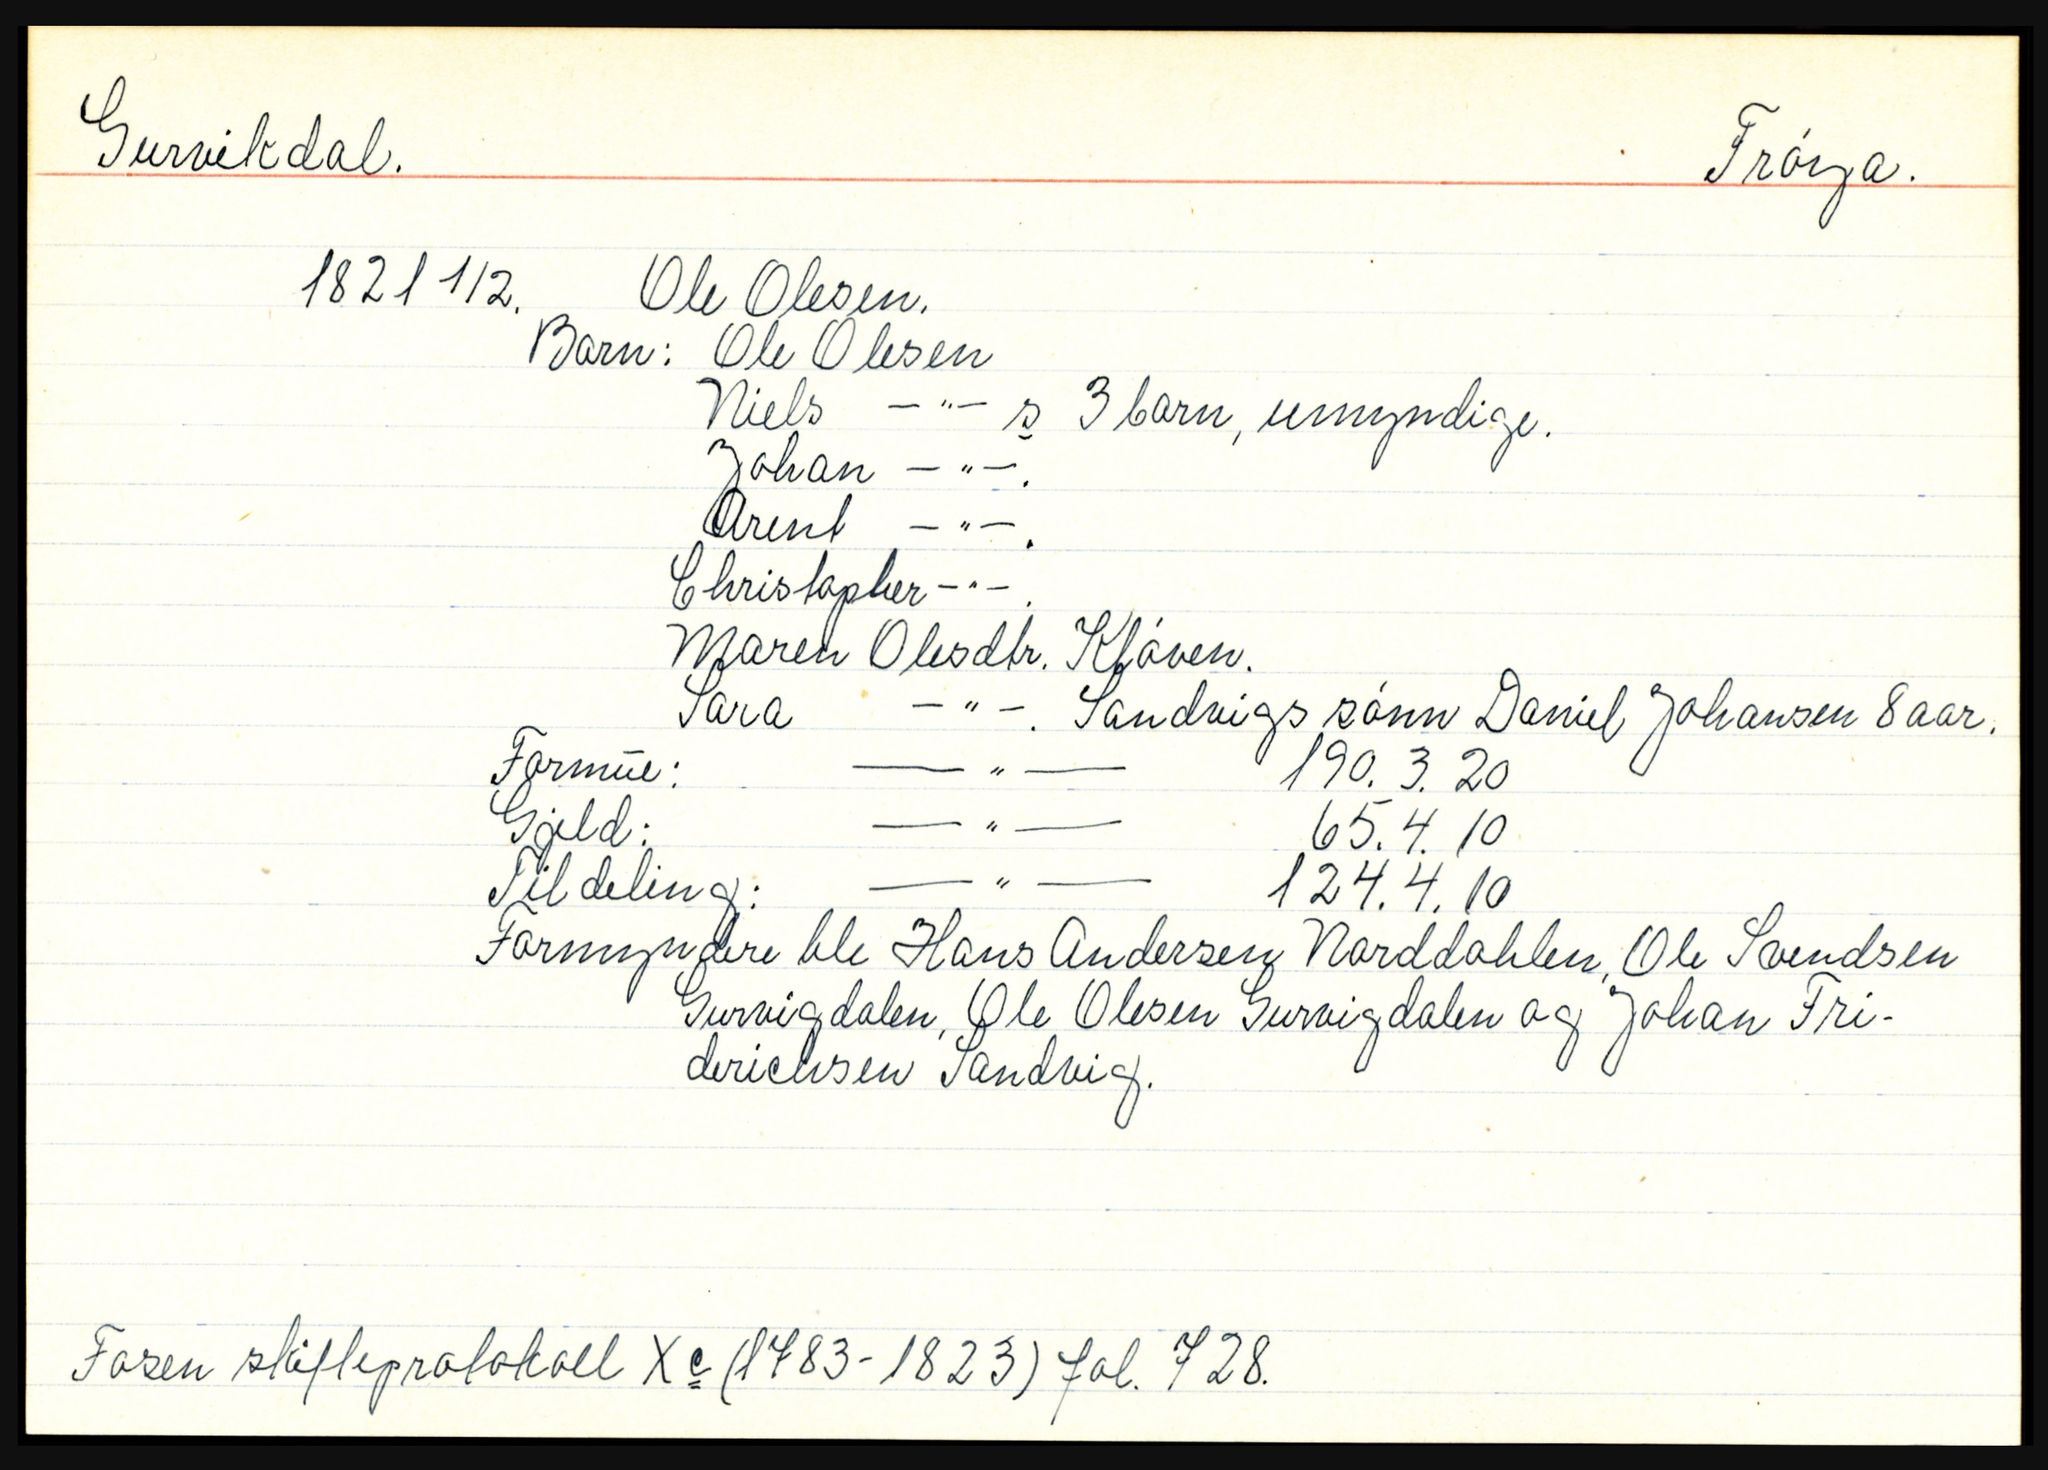 Gurvikdal. Frøya.
1821 1/2. Ole Olesen.
Barn: Ole Olesen
Niels —"— s 3 barn, umyndige.
Johan —"—.
Arent —"—.
Christopher —"—.
Maren Olesdtr. Kløven.
Sara —"—. Sandvigs sønn Daniel Johansen 8 aar.
Formue: —"— 190. 3. 20
Gjeld: —"— 65. 4. 10
Til deling: —"— 124. 4. 10
Formyndere ble Hans Andersen Norddahlen, Ole Svendsen
Gurvigdalen, Ole Olesen Gurvigdalen og Johan Fri-
derichsen Sandvig.
Fosen skifteprotokoll Xc (1783-1823) fol. 728.